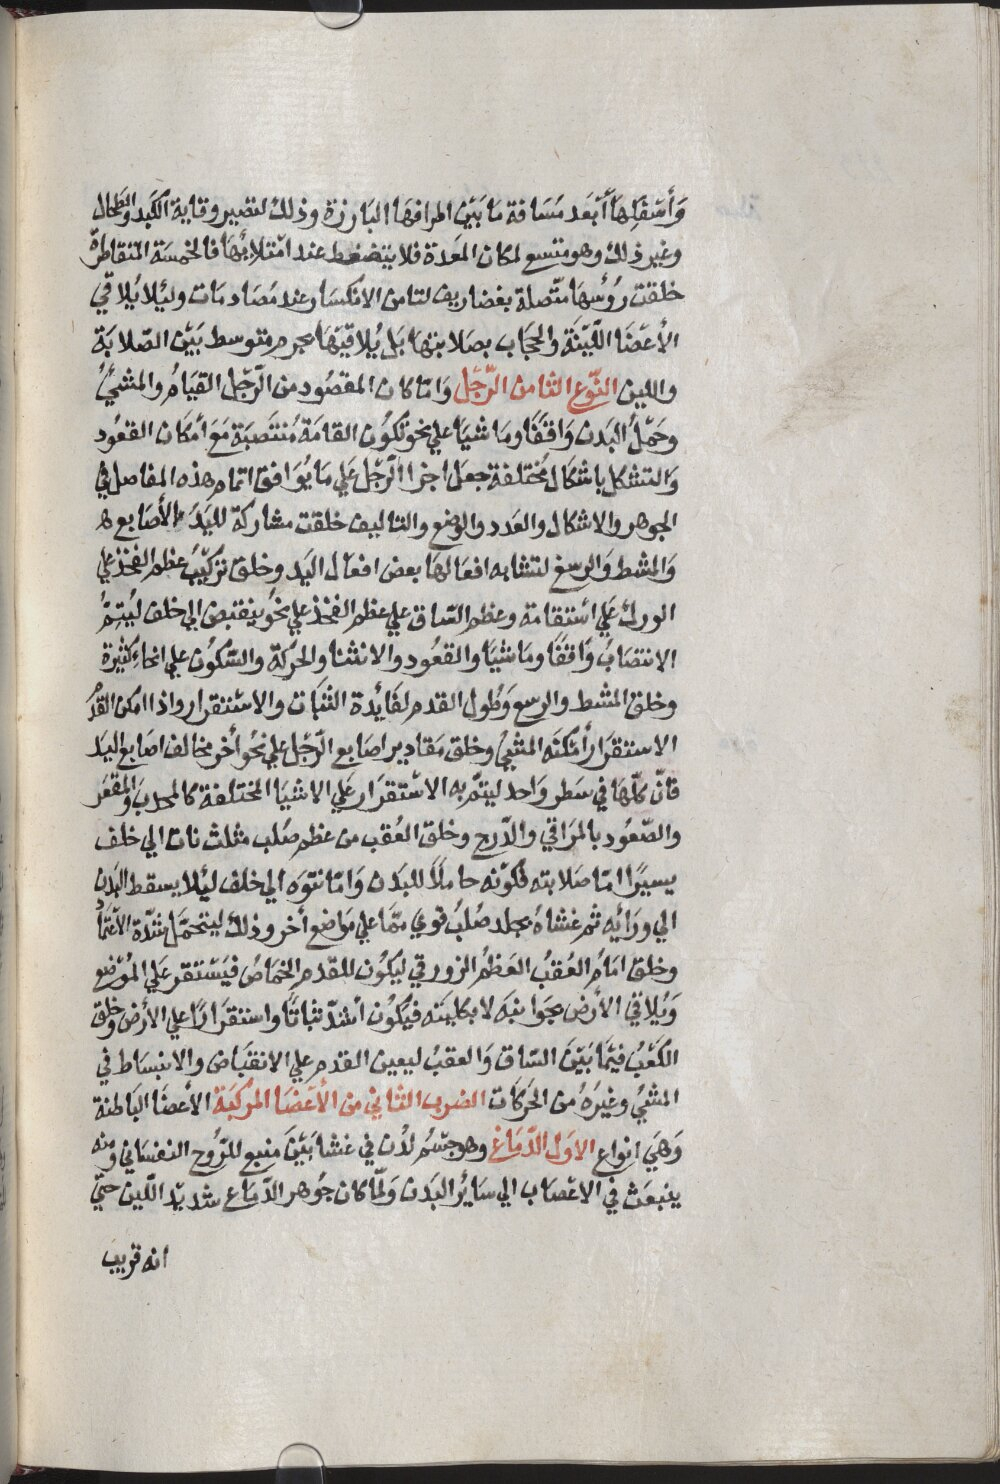 وَأسْفَلِهَا أَبْعَد مَسَافة مَا بَيْن اطرافهَا البَارزة وذلك لتصير وقاية الكَبد والطحال
وغير ذلك وهو متسع لمكان المَعدة فلا يتضغط عند امْتلايُهَا فالخمسَة المتقاطرة
خلقت رُؤسهَا متّصلة بغضاريف لتامن الانكسَار عند مصَادمَات وليلا يُلاقي
الأعضَا الليّنَة والحجَاب بصَلابتها بَل يُلاقيَهَا بجرم متوسط بَيْن الصّلابَة
واللين النّوع الثامن الرّجْل وَامّا كان المقصُود من الرّجْل القيَامُ والمشيُ
وحَمْلُ البَدن وَاقفًا ومَاشيًا علي نحو تكوُن القامَة مُنتَصبَة مَع امكان القعُود
وَالتشكل باشكال مُختلفة جعَل اجزا الرّجْل عَلي مَا يُوَافق اتمام هذه المفاصل في
الجوهر والاشكال والعَدد والوضع والتاليف خلقت مشاركة لليَد الأصَابع
وَالمشط وَالرسغ لتشابه افعَالهَا بعض افعَال اليَد وخلق تركيْبُ عظم الفخذ علي
الورك عَلي استقامة وعظم السّاق علي عظم الفخذ علي نحوُ ينقبض الي خلف ليُتِمُّ
الانتصَابُ وَاقفًا ومَاشيًا والقعُود والانثنا والحركة والسّكوُن علي انحاء كثيرة
وخلق المشط والرسغ وَطُول القدم لفَايُدة الثبَات والاسْتقرار واذا امكن القدَمُ
الاستقرَار أمْكنَه المشيُ وخلق مَقادير اصَابع الرّجْل علي نحُو أخر مخالف اصَابع اليَد
فانّ كلّهَا في سَطر وَاحد ليتمّ به الاسْتقرَار عَلي الاشيَا المختلفة كالمحدب وَالمقعَر
والصّعُود بالمرَاقي والدّرج وخلق العُقب من عظم صُلب مثلث نات الي خلف
يسيرًا امّا صَلابته فكوْنه حاملاً للبدَن وَامّا نتوه الي خلف ليُلا يسقط البَدن
الي ورَايُه ثم غشاهُ بجلد صُلبُ قوي ممّا علي موَاضع أخر وذلك ليتحمّل شدّة الاعتماد
وخلق امَامُ العُقبُ العَظمُ الزورقي ليكوُن للقدم اخمَاصُ فيَسْتقر عَلي الموُضع
وَيُلاقي الأرْض بجوَانبَه لا بكليتَه فيُكوُن اشدّ ثباتًا واستقرَارًا علي الأرْض وخلق
الكعْبُ فيْمَا بَيْنَ السّاق وَالعقبُ ليعين القدم علي الانقبَاض والانبسَاط في
المشيُ وغيَرهُ من الحَركَات الضرب الثاني من الأعضَا المركبَة الأعضَا البَاطنة
وَهيَ انواع الاوَل الدّمَاغ وهو جسْمُ لدُن في غشا بَيْنَ منبع للرُوح النفسَاني ومنه
ينبعَث في الاعْصَاب الي سَايُر البَدن وَلمّا كان جوُهر الدّمَاغ شديْد اللّين حتّي
انه قريب